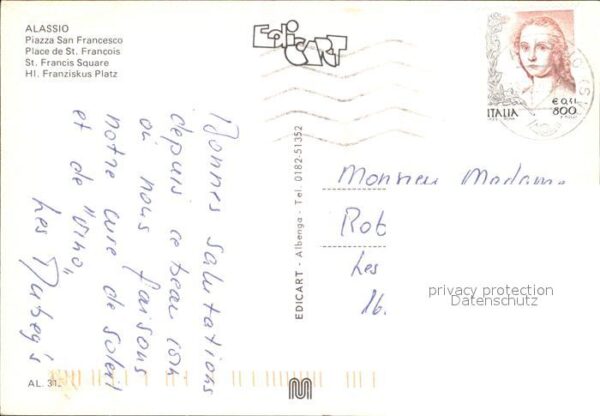 ALASSIO
Piazza San Francesco
Place de St. François
St. Francis Square
Hl. Franziskus Platz
EdiCART
Bonnes salutations
depuis ce beau coin
où nous faisons
notre cure de soleil
et de "vino"
Les
AL. 31
EDICART - Albenga - Tel. 0182-51352
ITALIA
€ 0,41
800
Monsieur Madame
Rob
Les
1b.
privacy protection
Datenschutz